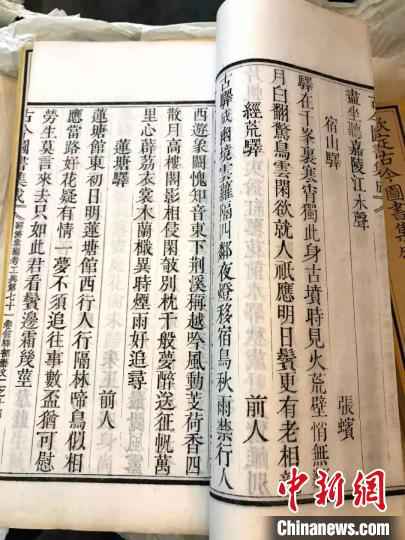 欽定古今圖書集成
盡坐聽嘉陵江水聲
宿山驛 張蠙
驛在千峯裏寒宵獨此身古墳時見火荒壁悄無
月白翻驚鳥雲閑欲就人祇應明日鬢更有老相
經荒驛 前人
古驛成幽境雲蘿隔四鄰夜燈移宿鳥秋雨禁行人
西遊象闕愧知音東下荆溪稱越吟風動芰荷香四
散月高樓閣影相侵閑敧別枕千般夢醉送征帆萬
里心薜荔衣裳木蘭檝異時煙雨好追尋
蓮塘驛 前人
蓮塘館東初日明蓮塘館西行人行隔林啼鳥似相
應當路好花疑有情一夢不須追往事數盃猶可慰
勞生莫言來去只如此君看鬢邊霜幾莖
古今圖書集成 經濟彙編考工典第七十一卷館驛部藝文二之
中新网
Chinanews.com